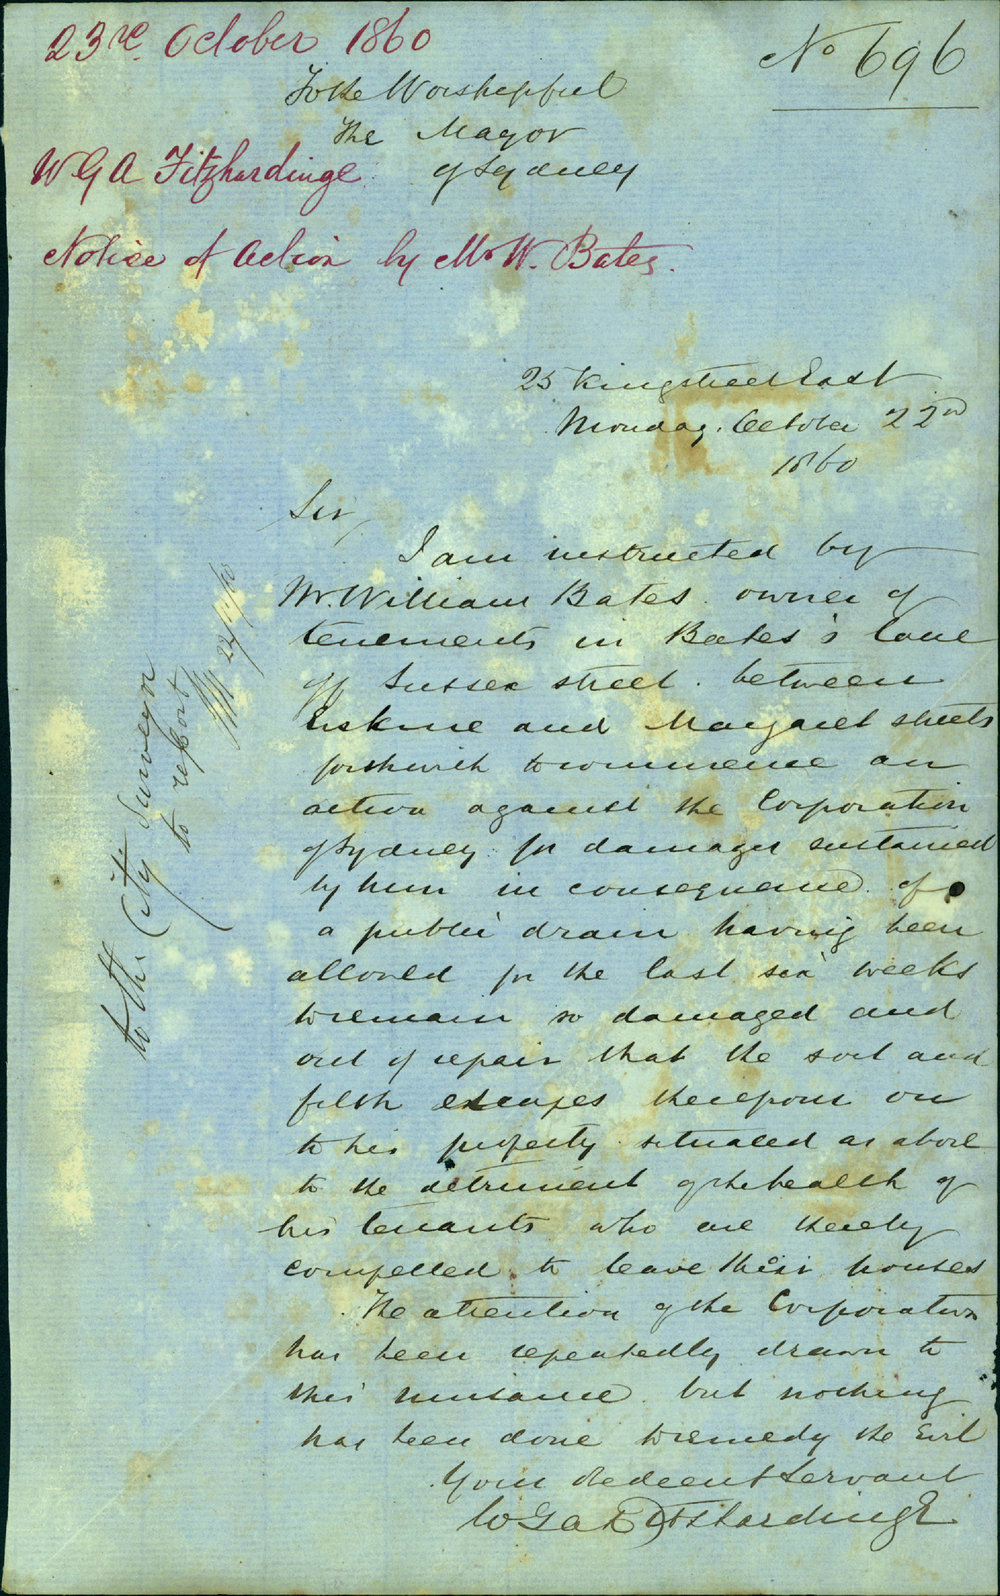 23rd October 1860
No 696
To the Worshipful
The Mayor
of Sydney
W G A Fitzhardinge
Notice of Action by Mr W. Bates.
25 King street East
Monday. October 22nd
1860
Sir,
I am instructed by
Mr. William Bates owner of
tenements in Bates's lane
off Sussex street. between
Erskine and Margaret streets
forthwith to commence an
action against the Corporation
of Sydney for damages sustained
by him in consequence of
a public drain having been
allowed for the last six weeks
to remain so damaged and
out of repair that the soil and
filth escapes therefrom on
to his property situated as above
to the detriment of the health of
his tenants who are thereby
compelled to leave their houses
The attention of the Corporation
has been repeatedly drawn to
this nuisance but nothing
has been done to remedy the Evil
Your Obedient Servant
W G A Fitzhardinge
to the City Surveyor
to report